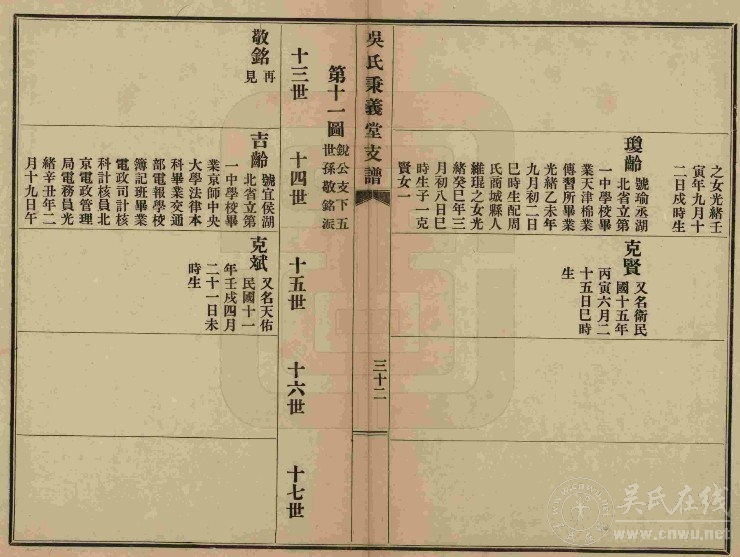 之女光緒壬
寅年九月十
二日戌時生
瓊齡
號瑜丞湖
北省立第
一中學校畢
業天津棉業
傳習所畢業
光緒乙未年
九月初二日
巳時生配周
氏商城縣人
維琨之女光
緒癸巳年三
月初八日巳
時生子一克
賢女一
克賢
又名衛民
國十五年
丙寅六月二
十五日巳時
生
吳氏秉義堂支譜
三十二
第十一圖
銳公支下五
世孫敬銘派
十三世
十四世
十五世
十六世
十七世
敬銘
再見
吉齡
號宜侯湖
北省立第
一中學校畢
業京師中央
大學法律本
科畢業交通
部電報學校
簿記班畢業
電政司計核
科計核員北
京電政管理
局電務員光
緒辛丑年二
月十九日午
克斌
又名天佑
民國十一
年壬戌四月
二十一日未
時生
吳氏在线
www.cnwu.net